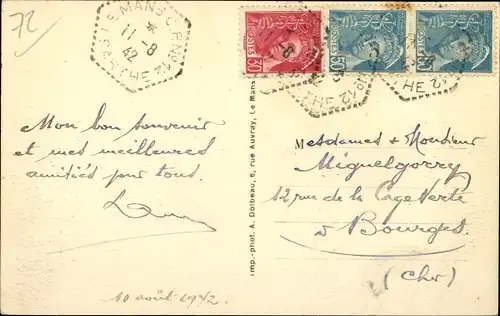 72
LE MANS C.P. No 12
11-8
42
SARTHE
30
POSTES
50
50
Mon bon souvenir
et mes meilleures
amitiés pour tous.
10 août 1942.
Imp.-phot. A. Dolbeau, 6, rue Auvray, Le Mans
Mesdames & Monsieur
Miguelgorry
12 rue de la Cage Verte
à Bourges.
(Cher)